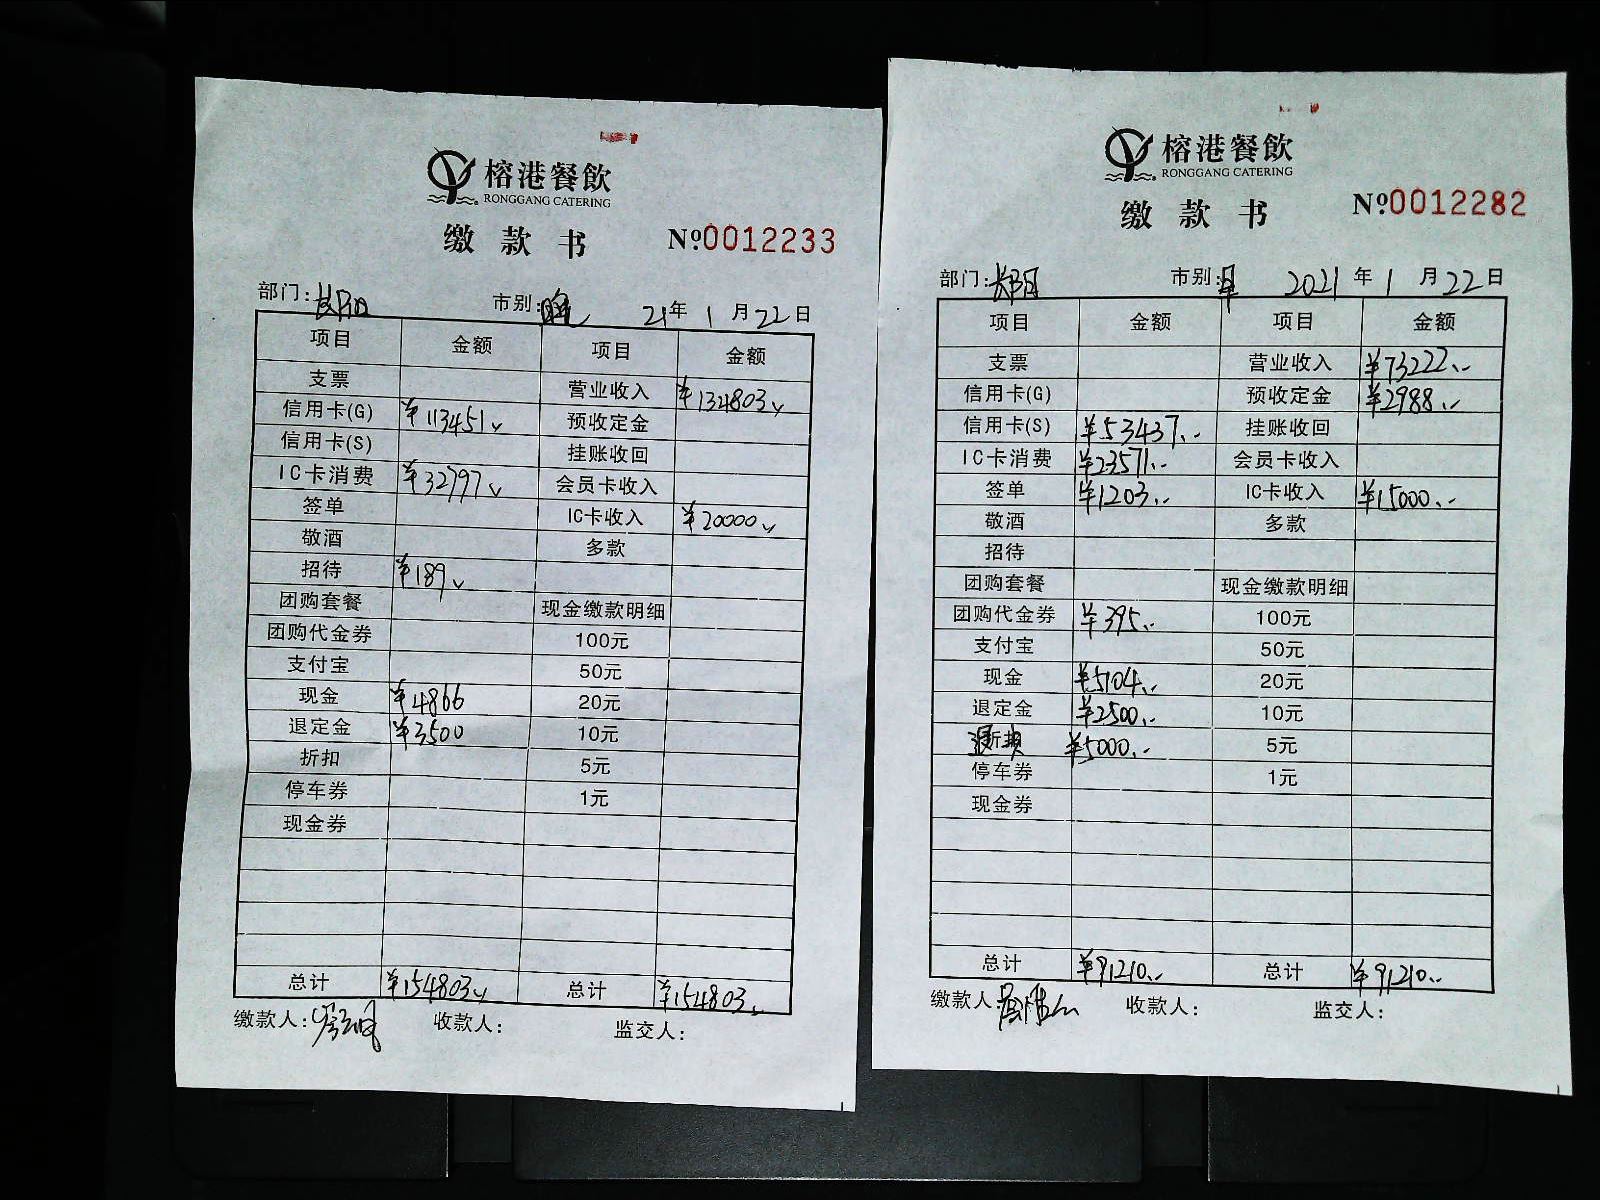 榕港餐飲
RONGGANG CATERING
缴款书 №0012233
部门: 市别:晚 21年1月22日
项目 金额 项目 金额
支票 营业收入 ¥134803
信用卡(G) ¥113451 预收定金
信用卡(S) 挂账收回
IC卡消费 ¥32797 会员卡收入
签单 IC卡收入 ¥20000
敬酒 多款
招待 ¥189
团购套餐 现金缴款明细
团购代金券 100元
支付宝 50元
现金 ¥4866 20元
退定金 ¥3500 10元
折扣 5元
停车券 1元
现金券
总计 ¥154803 总计 ¥154803
缴款人: 收款人: 监交人:
榕港餐飲
RONGGANG CATERING
缴款书 №0012282
部门: 市别: 2021年1月22日
项目 金额 项目 金额
支票 营业收入 ¥73222
信用卡(G) 预收定金 ¥2988
信用卡(S) ¥53437 挂账收回
IC卡消费 ¥23571 会员卡收入
签单 ¥1203 IC卡收入 ¥15000
敬酒 多款
招待
团购套餐 现金缴款明细
团购代金券 ¥395 100元
支付宝 50元
现金 ¥5104 20元
退定金 ¥2500 10元
¥5000 5元
停车券 1元
现金券
总计 ¥91210 总计 ¥91210
缴款人: 收款人: 监交人: